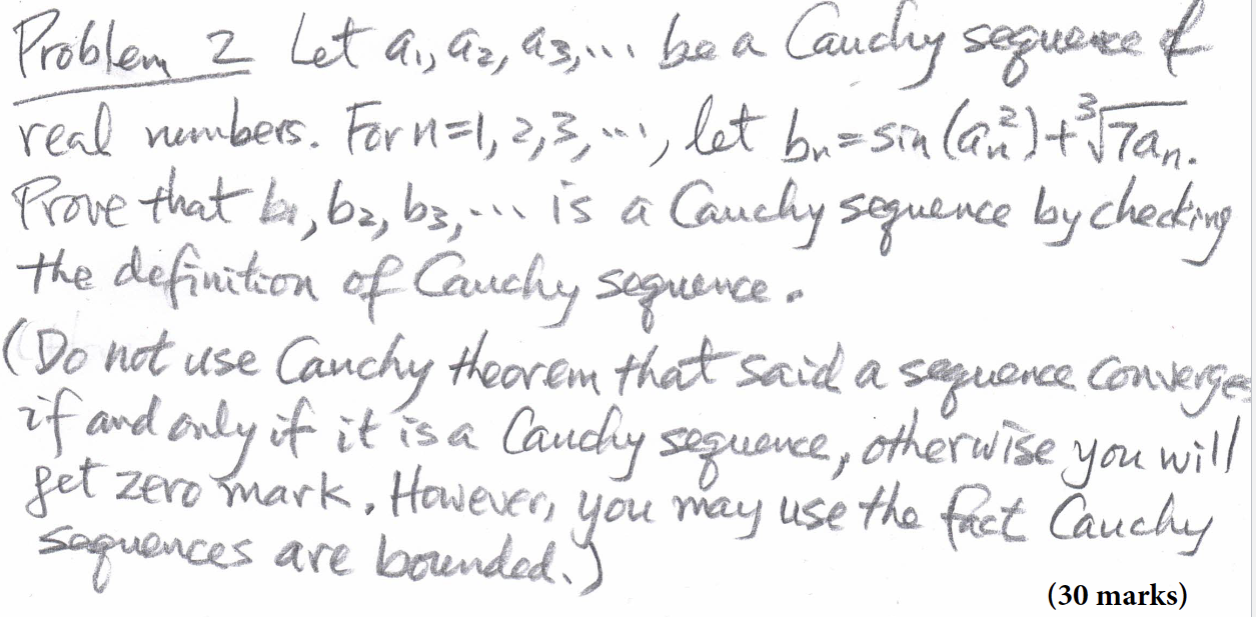 Problem 2 Let a₁, a₂, a₃,... be a Cauchy sequence of
real numbers. For n=1, 2, 3, ..., let bₙ = sin(aₙ²) + ∛7aₙ.
Prove that b₁, b₂, b₃, ... is a Cauchy sequence by checking
the definition of Cauchy sequence.
(Do not use Cauchy theorem that said a sequence converges
if and only if it is a Cauchy sequence, otherwise you will
get zero mark. However, you may use the fact Cauchy
sequences are bounded.)
(30 marks)